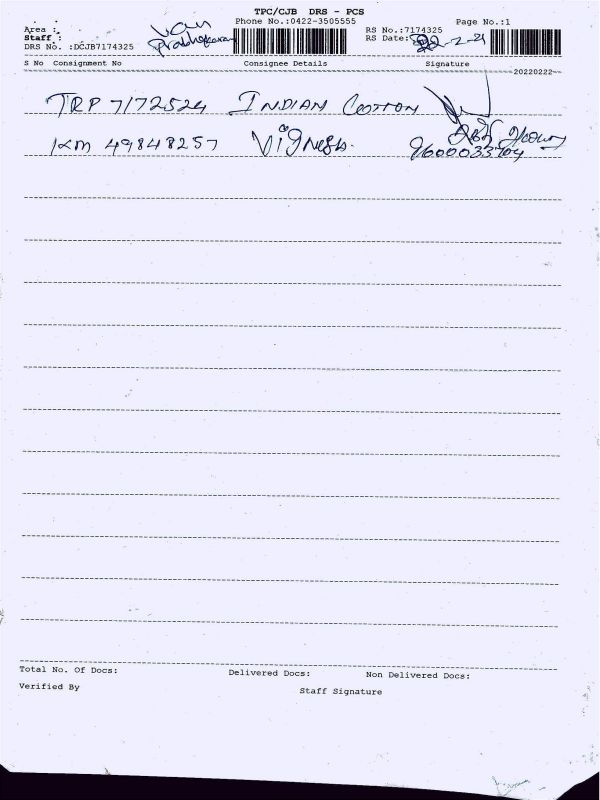 TPC/CJB DRS - PCS
Area : Van Phone No.:0422-3505555 RS No.:7174325 Page No.:1
Staff : Prabhakaran RS Date: 22-2-21
DRS No. :DCJB7174325
S No Consignment No Consignee Details Signature
20220222
TRP 7172524 INDIAN COTTON
KM 49848257 Vignesh. 9600033704
Total No. Of Docs: Delivered Docs: Non Delivered Docs:
Verified By Staff Signature